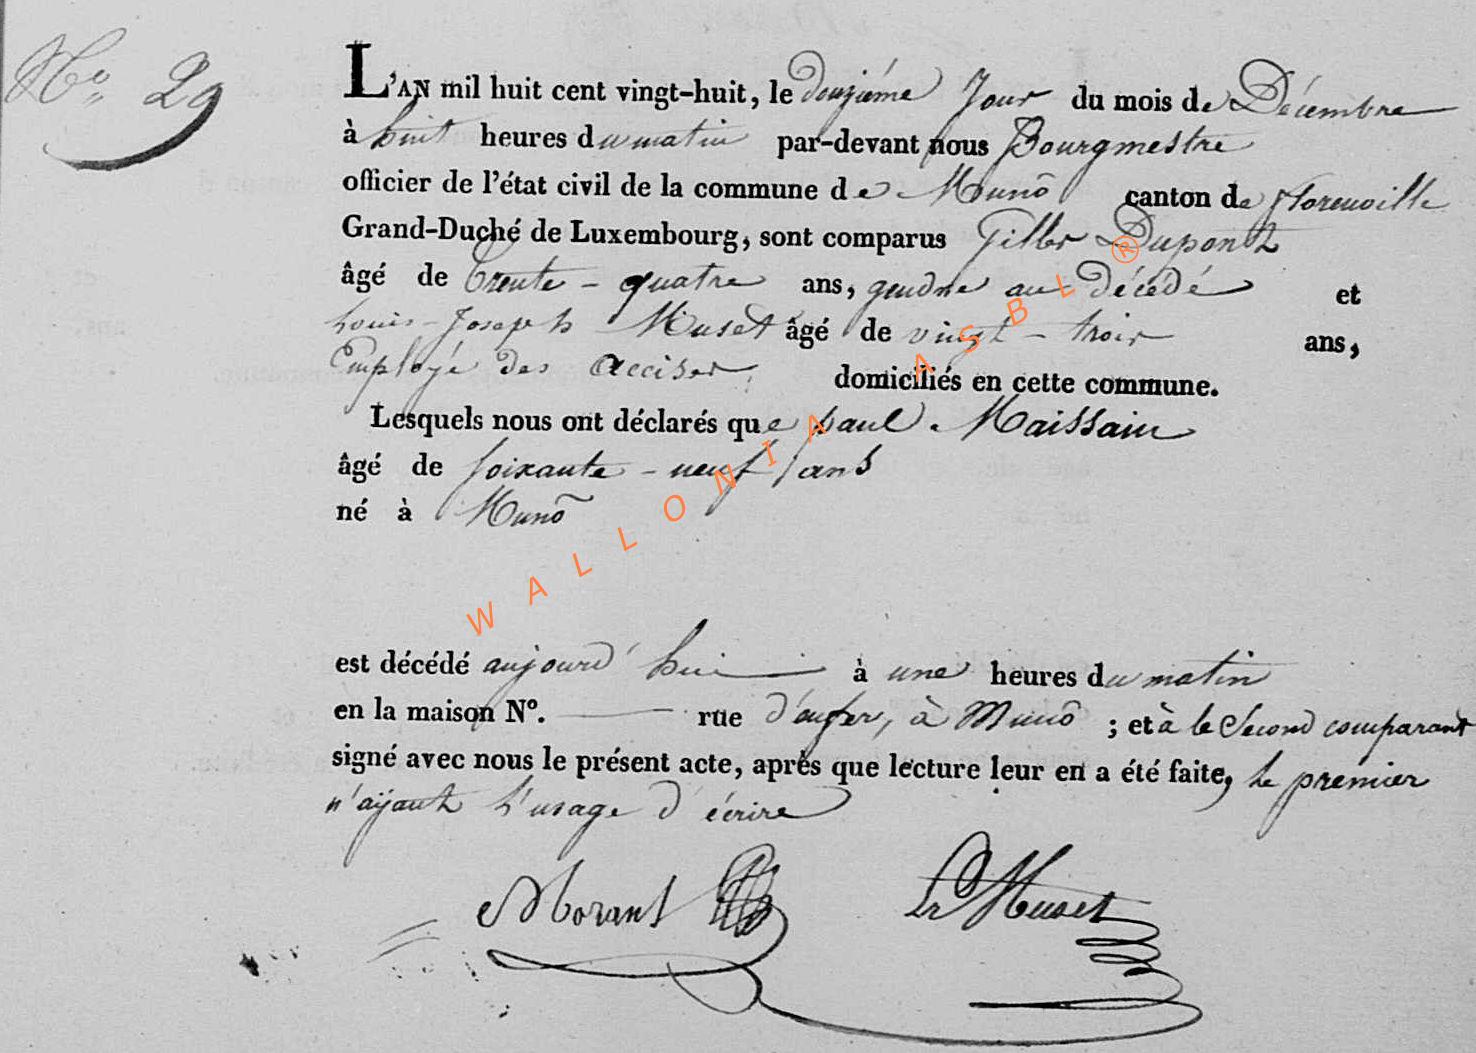 No 29
L'AN mil huit cent vingt-huit, le douziéme Jour du mois de Décembre
à huit heures du matin par-devant nous Bourgmestre
officier de l'état civil de la commune de Munô canton de Florenville
Grand-Duché de Luxembourg, sont comparus Gilles Dupont
âgé de trente-quatre ans, gendre au décédé et
Louis-Joseph Muset âgé de vingt-trois ans,
Employé des accises, domiciliés en cette commune.
Lesquels nous ont déclarés que paul Maissain
âgé de soixante-neuf ans
né à Munô
est décédé aujourd'hui à une heures du matin
en la maison N°. rue d'enfer, à Munô ; et à le Second comparant
signé avec nous le présent acte, après que lecture leur en a été faite, le premier
n'aÿant l'usage d'écrire
Morant Muset
WALLONIA ASBL ®